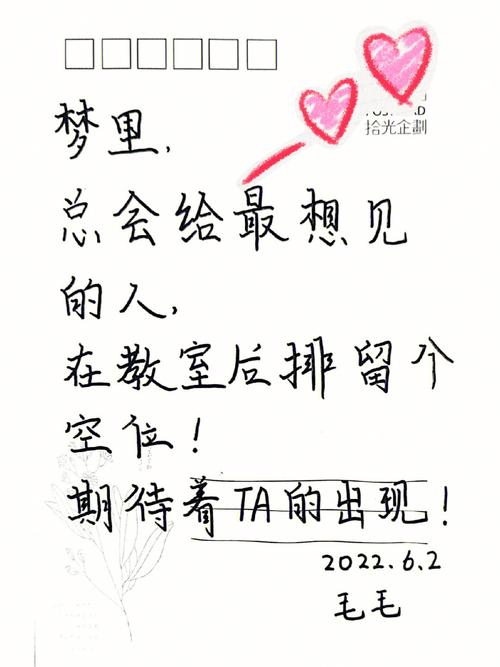 拾光企劃
梦里,
总会给最想见
的人,
在教室后排留个
空位!
期待着TA的出现!
2022.6.2
毛毛